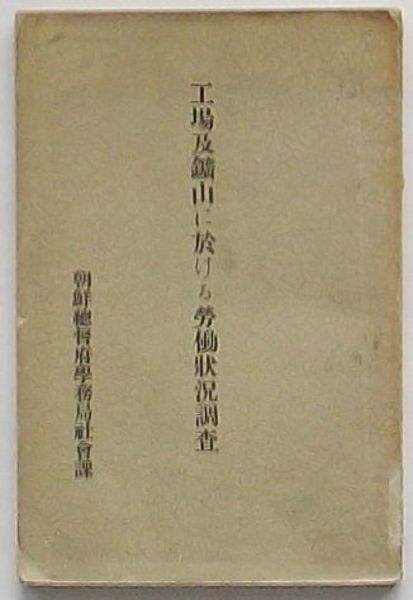 工場及鑛山に於ける勞働狀況調査
朝鮮總督府學務局社會課